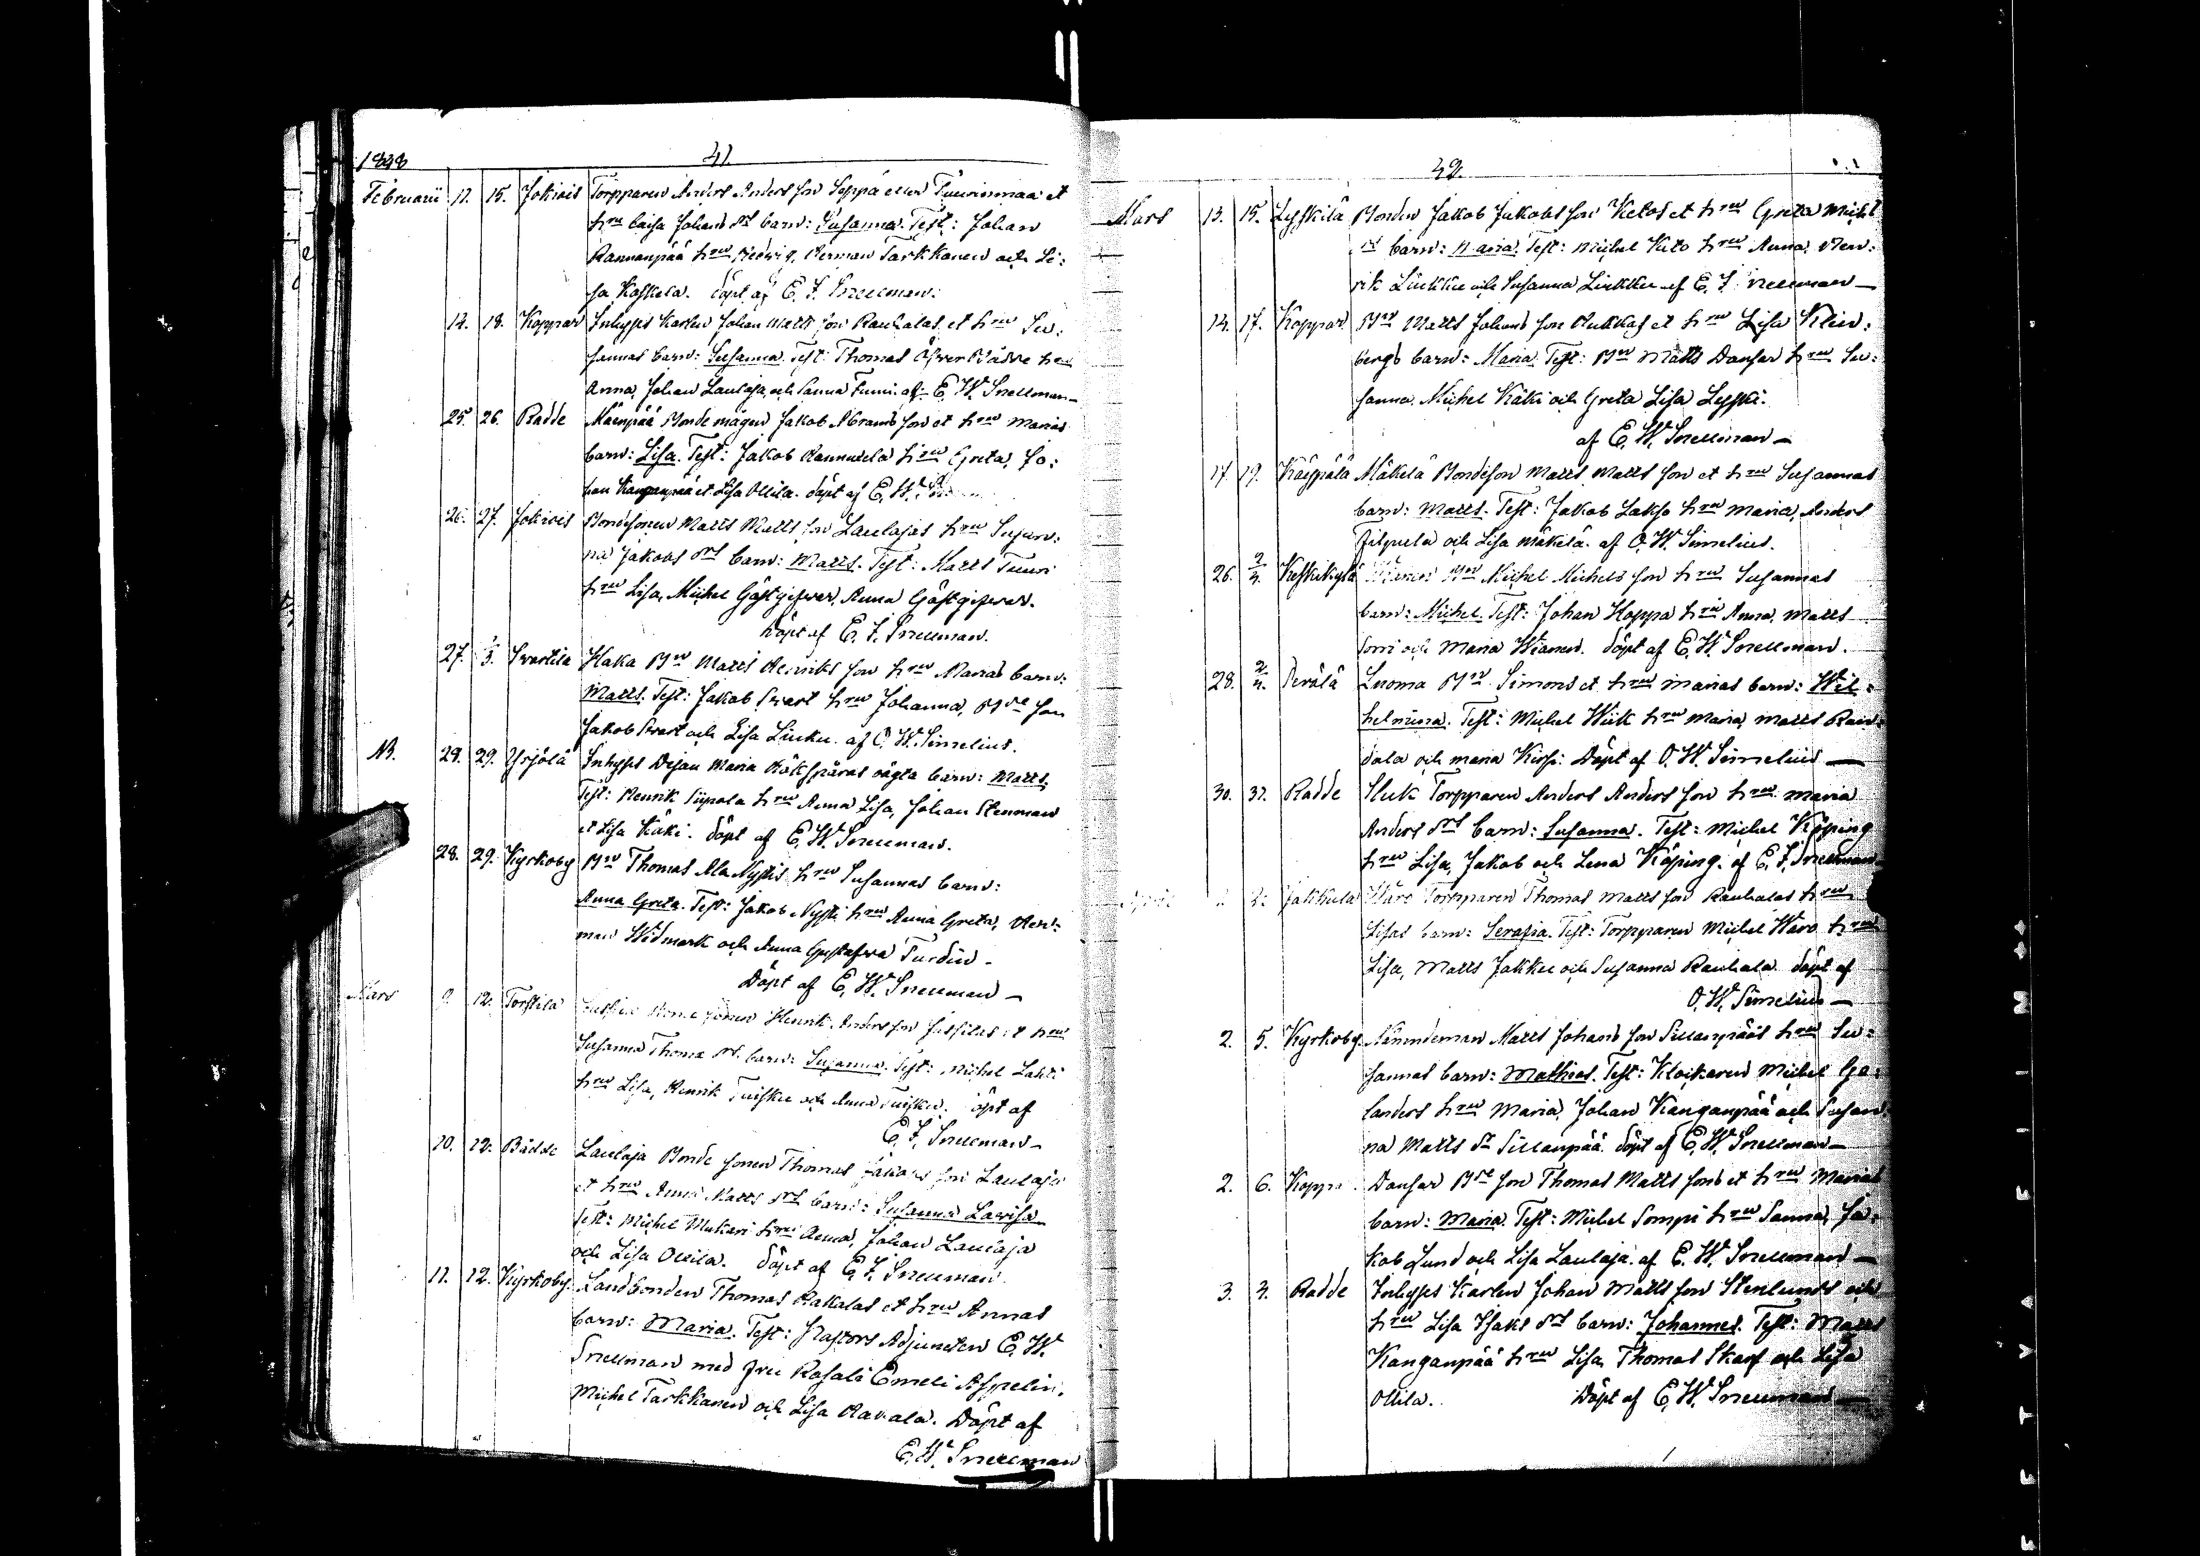 1848
41
Februarii 11. 15. Jokivis Torpparen Anders Anders son Seppä eller Tuurinmaa et
hru Caisa Johans dr barn: Susanna. Test: Johan
Rannanpää hru Hedvig, Herman Tarkkanen och Li:
sa Koskela. döpt af E. J. Snellman.
14. 18. Koppar Inhyses Karlen Johan Matts son Rauhalas et hru Su:
sannas barn: Susanna. Test: Thomas Öfver Bädde hru
Anna, Johan Laulaja och Sanna Tuuri. af E. W. Snellman
25. 26. Radde Mäenpää Bonde mågen Jakob Abrams son et hru Marias
barn: Lisa. Test: Jakob Rannucla hru Greta, Jo:
han Kanganpää et Lisa Ollila. döpt af E. W.
26. 27. Jokivis Bondesonen Matts Matts son Laulajas hru Susan:
na Jakobs drs barn: Matts. Test: Matts Tuuri
hru Lisa, Michel Gästgifvar, Anna Gästgifvar.
döpt af E. J. Snellman.
27. 1/3. Svartila Haka Bn Matts Henriks son hru Marias barn:
Matts. Test: Jakob Svart hru Johanna, Bde son
Jakob Svart och Lisa Liuku. af O. W. Simelius.
NB. 28. 29. Yrjölä Inhyses Dejan Maria Rökspåras oägta barn: Matts
Test: Henrik Siipola hru Anna Lisa, Johan Stenman
et Lisa Käki. döpt af E. W. Snellman.
28. 29. Kyrkoby Bn Thomas Ala Nystis hru Susannas barn:
Anna Greta. Test: Jakob Nysti hru Anna Greta, Her:
man Widmark och Anna Gustafva Turdin.
Döpt af E. W. Snellman
Mars 9. 12. Torstila Jussila Bonde sonen Henrik Anders son Jussilas et hru
Susanna Thomæ drs barn: Susanna. Test: Michel Lahti
hru Lisa, Henrik Tuisku och Anna Tuisku. döpt af
E. J. Snellman
10. 12. Bädde Laulaja Bonde sonen Thomas Jakobs son Laulajas
et hru Anna Matts drs barn: Susanna Lovisa
Test: Michel Mukari hru Anna, Johan Laulaja
och Lisa Ollila. döpt af E. J. Snellman.
11. 12. Kyrkoby. Landbonden Thomas Rakalas et hru Annas
barn: Maria. Test: Pastors Adjuncten E. W.
Snellman med fru Rosali Emeli Aspelin,
Michel Tarkkanen och Lisa Rakala. Döpt af
E. W. Snellman
42.
Mars 13. 15. Lyskilä Bonden Jakob Jakobs son Ketos et hru Greta Michl
drs barn: Maria. Test: Michel Keto hru Anna, Hen:
rik Liukku och Susanna Liukku af E. J. Snellman
14. 17. Koppar Bn Matts Johans son Rukkas et hru Lisa Klin:
bergs barn: Maria. Test: Bn Matts Dansar hru Su:
sanna, Michel Käki och Greta Lisa Lyski.
af E. W. Snellman
17. 19. Käyppälä Mäkelä Bondeson Matts Matts son et hru Susannas
barn: Matts. Test: Jakob Lakso hru Maria, Anders
Filpula och Lisa Mäkelä. af O. W. Simelius.
26. 2/4. Keskikylä Bn Michel Michels son hru Susannas
barn: Michel. Test: Johan Hoppa hru Anna, Matts
Sorri och Maria Wianen. döpt af E. W. Snellman.
28. 2/4. Perälä Luoma Bn Simons et hru Marias barn: Wil:
helmina. Test: Michel Wiik hru Maria, Matts Rau:
dala och Maria Kirsi. Döpt af O. W. Simelius
30. 31. Radde Sluk Torpparen Anders Anders son hru Maria
Anders drs barn: Susanna. Test: Michel Köping
hru Lisa, Jakob och Lena Köping. af E. J. Snellman
April 1. 2. Jakkula Waro Torpparen Thomas Matts son Rauhalas hru
Lisas barn: Serafia. Test: Torpparen Michel Waro hru
Lisa, Matts Jakku och Susanna Rauhala döpt af
O. W. Simelius
2. 5. Kyrkoby. Nämndeman Matts Johans son Sillanpääs hru Su:
sannas barn: Mathias. Test: Klockaren Michel Go:
landers hru Maria, Johan Kanganpää och Susan
na Matts dr Sillanpää. döpt af E. W. Snellman
2. 6. Koppar Dansar Bde son Thomas Matts sons et hru Marias
barn: Maria. Test: Michel Sompi hru Sanna, Ja:
kob Lund och Lisa Laulaja. af E. W. Snellman
3. 4. Radde Inhyses Karlen Johan Matts son Stenlunds och
hru Lisa Isaks drs barn: Johannes. Test: Matts
Kanganpää hru Lisa, Thomas Skarf och Lisa
Ollila. Döpt af E. W. Snellman